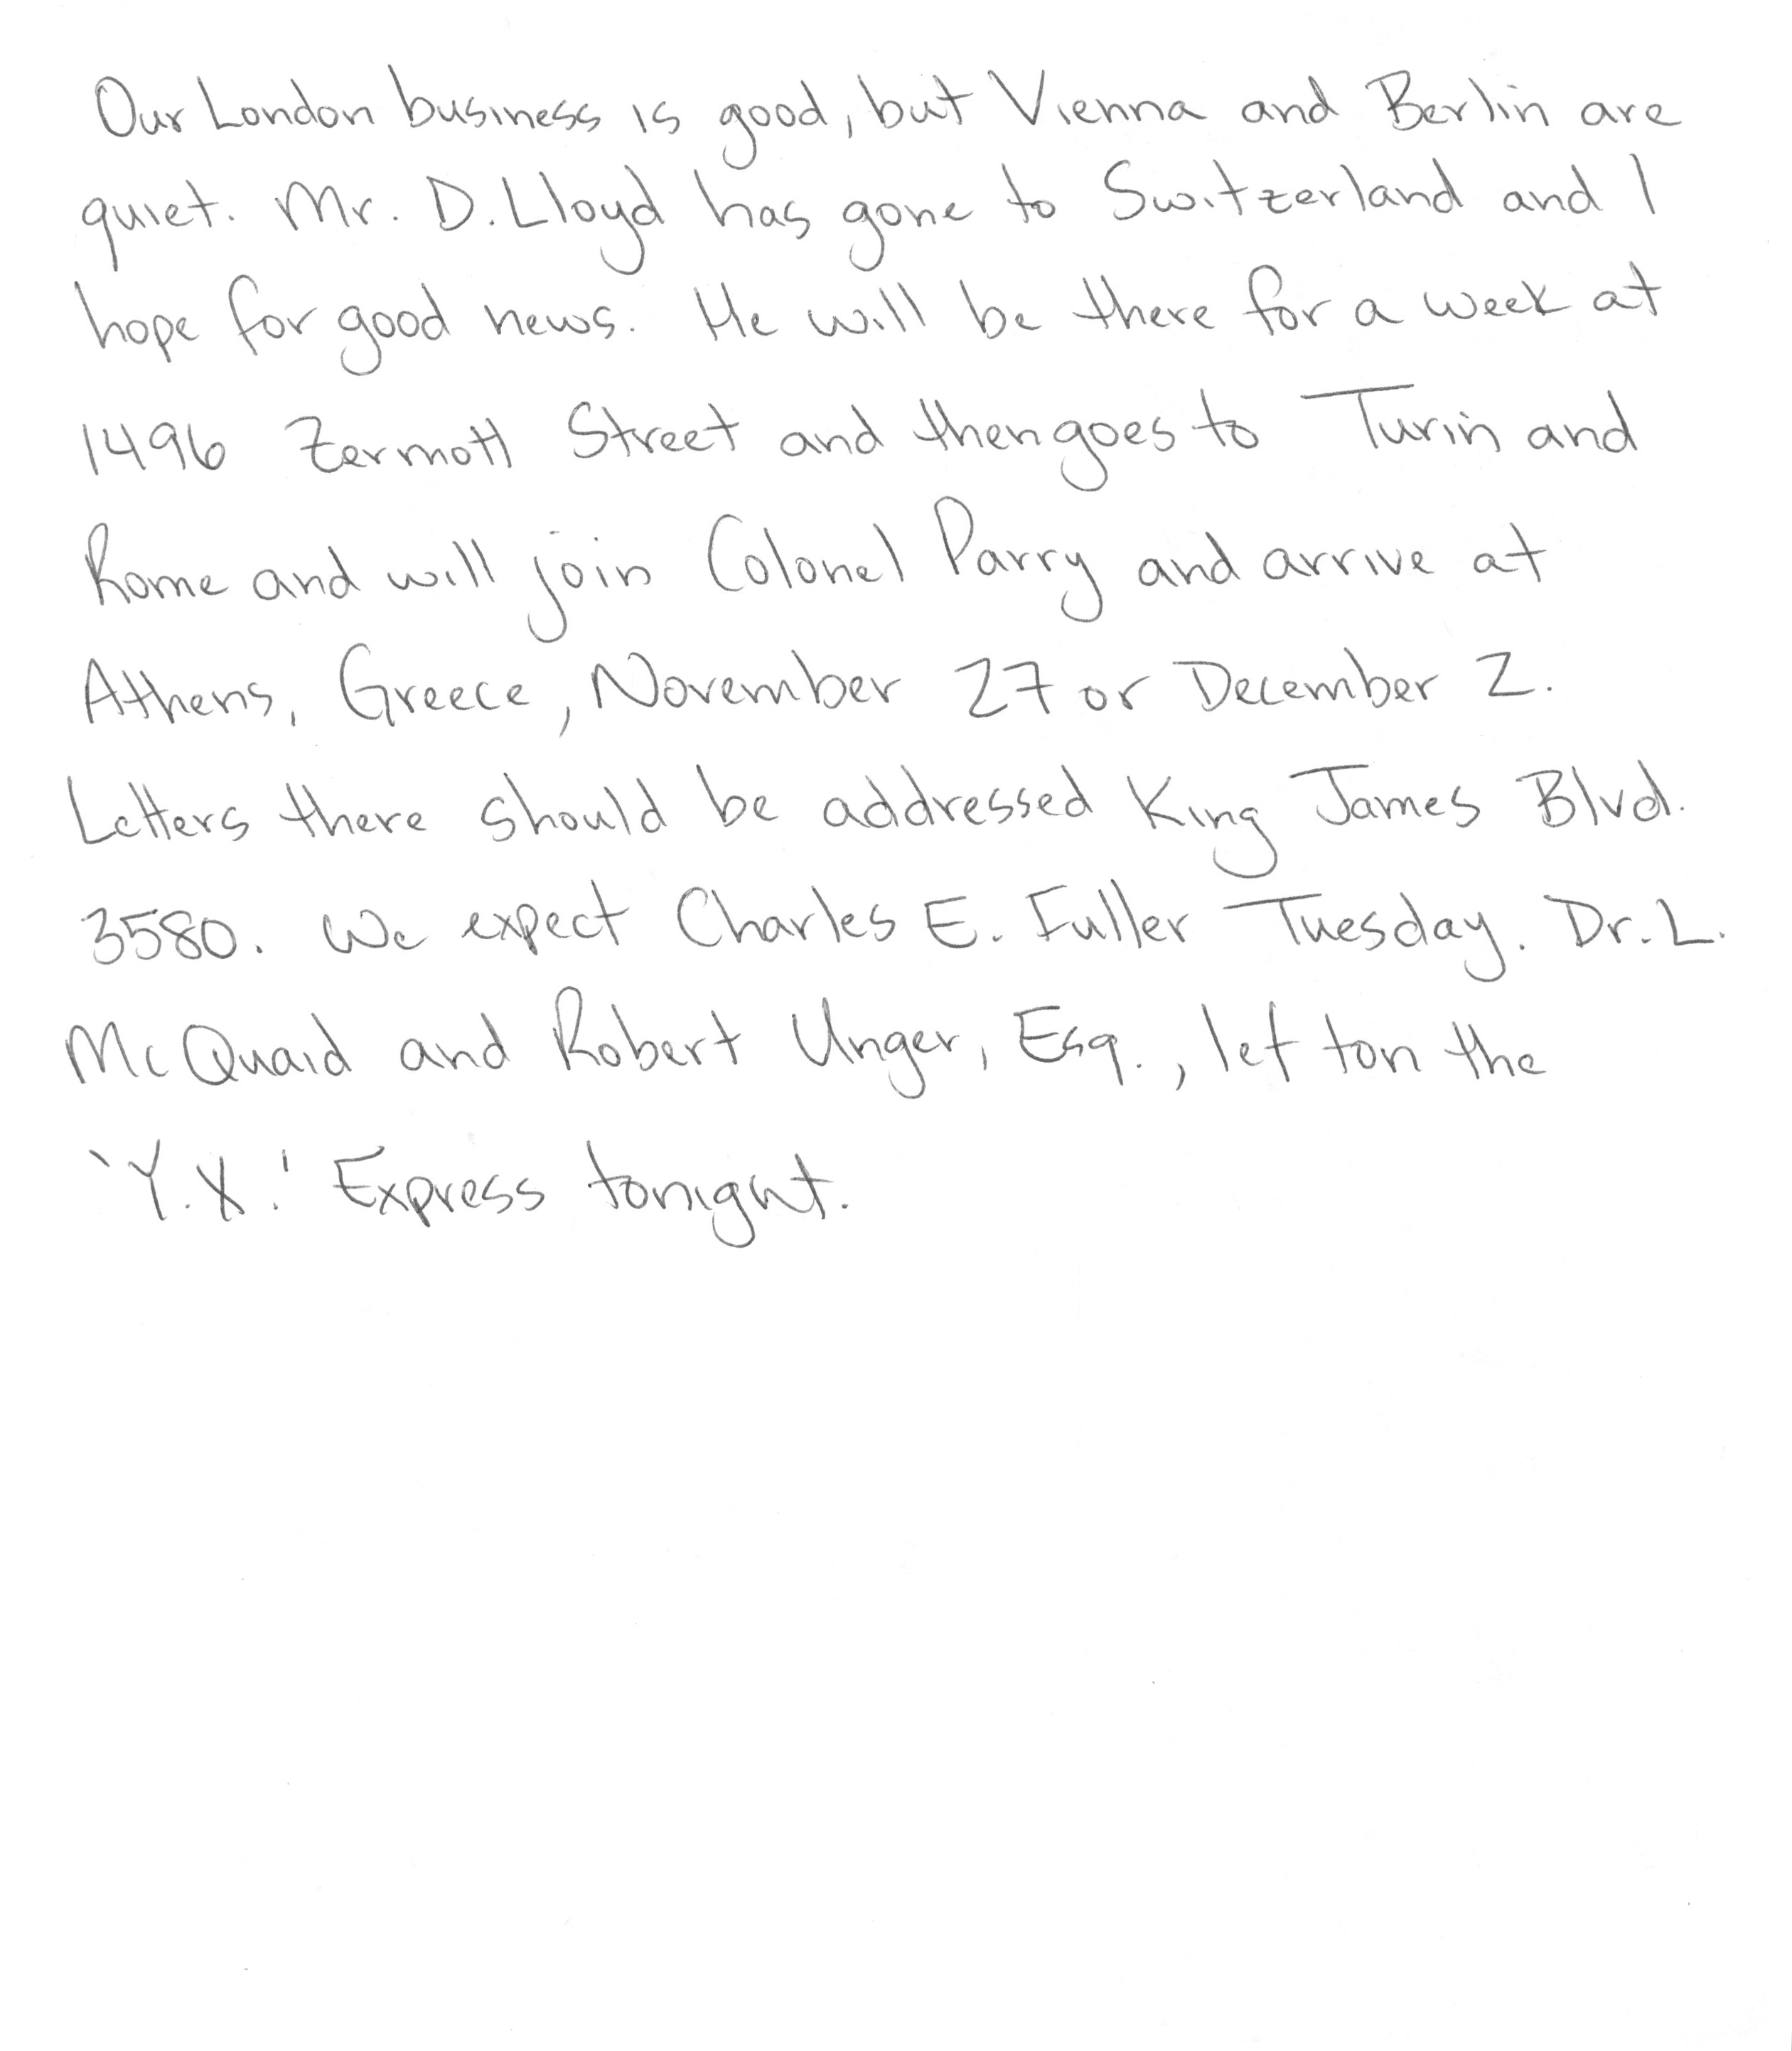 Our London business is good, but Vienna and Berlin are
quiet. Mr. D. Lloyd has gone to Switzerland and I
hope for good news. He will be there for a week at
1496 Zermott Street and then goes to Turin and
Rome and will join Colonel Parry and arrive at
Athens, Greece, November 27 or December 2.
Letters there should be addressed King James Blvd.
3580. We expect Charles E. Fuller Tuesday. Dr. L.
McQuaid and Robert Unger, Esq., lef ton the
'Y.X.' Express tonight.